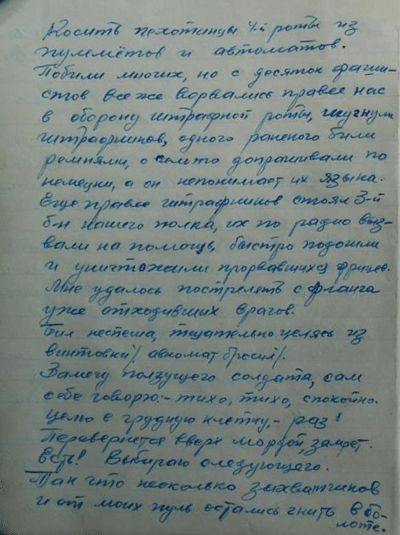 Косить пехотинцы 4й роты из
пулемётов и автоматов.
Побили многих, но с десяток фаши-
стов все же ворвались правее нас
в оборону штрафной роты, шугнули
штрафников, одного раненого били
ремнями, о допрашивали по
немецки, а он непонимает их языка.
Еще правее штрафников стоял 3-й
б-н нашего полка, их по радио выз-
вали на помощь, быстро подошли
и уничтожили прорвавшихся фрицев.
Мне удалось пострелять с фланга
уже отходивших врагов.
Бил неспеша, тщательно целясь из
винтовки /автомат бросил/.
Замечу ползущего солдата, сам
себе говорю:- тихо, тихо, спокойно.
Целю в грудную клетку, - раз!
Перевернется вверх мордой, замрет.
Есть! Выбираю следующего.
Так что несколько захватчиков
и от моих пуль остались гнить в бо-
лоте.